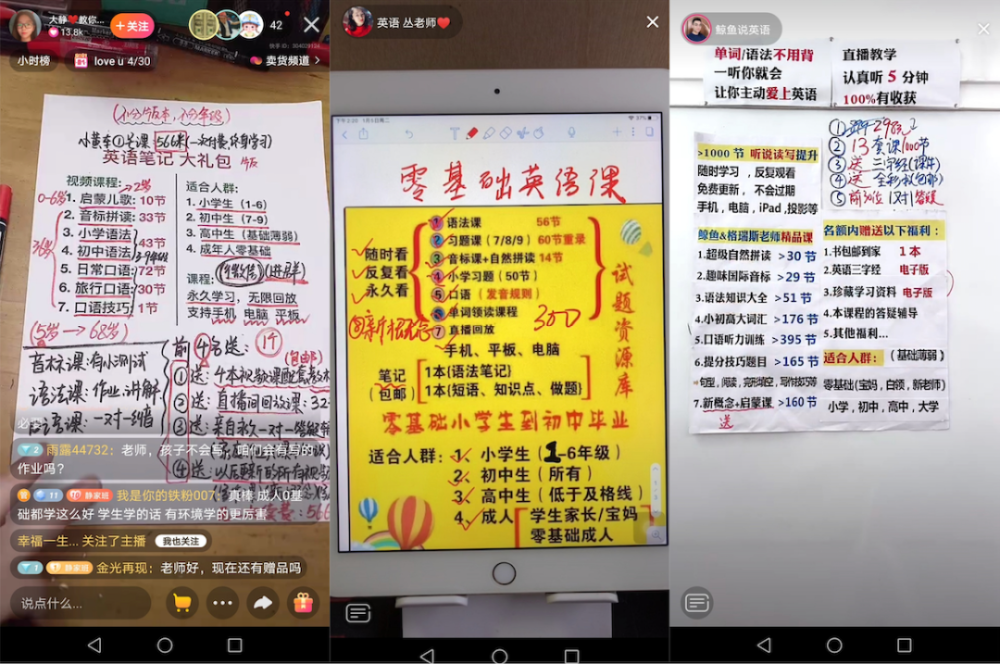 大静❤️教你...
13.8k
+关注
42
小时榜
love u 4/30
卖货频道
(不分版本,不分年级)
小黄车①号课
英语笔记 大礼包
视频课程:
1. 启蒙儿歌: 10节
2. 音标拼读: 33节
3. 小学语法:
4. 初中语法:
43节
5. 日常口语: 72节
6. 旅行口语: 30节
7. 口语技巧: 1节
适合人群:
1. 小学生 (1-6)
2. 初中生 (7-9)
3. 高中生 (基础薄弱)
4. 成年人零基础
课程:
永久学习,无限回放
支持手机 电脑 平板
(5岁→68岁)
音标课:有小测试
语法课:作业,讲解
前4名送:
(包邮)
①送:
②送:直播间回放课:32
③送:
④送:
雨露44732:老师,孩子不会写,咱们会有写的
作业吗?
静家班 我是你的铁粉007:真棒 成人0基
础都学这么好 学生学的话 有环境学的更厉害
幸福一生... 关注了主播 我也关注
静家班 金光再现:老师好,现在还有赠品吗
说点什么...
英语 丛老师❤️
零基础英语课
随时看
反复看
永久看
① 语法课 56节
② 习题课(7/8/9) 60节重录
③ 音标课+自然拼读 14节
④ 小学习题(50节)
⑤ 口语(发音规则)
⑥ 单词领读课程
⑦ 直播回放
300
手机、平板、电脑
试题资源库
笔记
(包邮)
1本{语法笔记}
1本{短语、知识点、做题}
零基础小学生到初中毕业
适合人群:
1. 小学生(1-6年级)
2. 初中生(所有)
3. 高中生(低于及格线)
4. 成人
学生家长/宝妈
零基础成人
鲸鱼说英语
单词/语法不用背
一听你就会
让你主动爱上英语
直播教学
认真听 5 分钟
100%有收获
>1000 节 听说读写提升
随时学习,反复观看
免费更新,不会过期
手机,电脑,iPad,投影等
② 13套课1000节
③ 送 三字经(课件)
⑤ 前50位 1对1答疑
鲸鱼&格瑞斯老师精品课
1.超级自然拼读 >30 节
2.趣味国际音标 >29 节
3.语法知识大全 >51 节
4.小初高大词汇 >176 节
5.口语听力训练 >395 节
6.提分技巧题目 >165 节
7.新概念+启蒙课 >160 节
送
名额内赠送以下福利:
1.书包邮到家 1本
2.英语三字经 电子版
3.珍藏学习资料 电子版
4.本课程的答疑辅导
5.其他福利...
适合人群: (基础薄弱)
零基础(宝妈,白领,新老师)
小学,初中,高中,大学